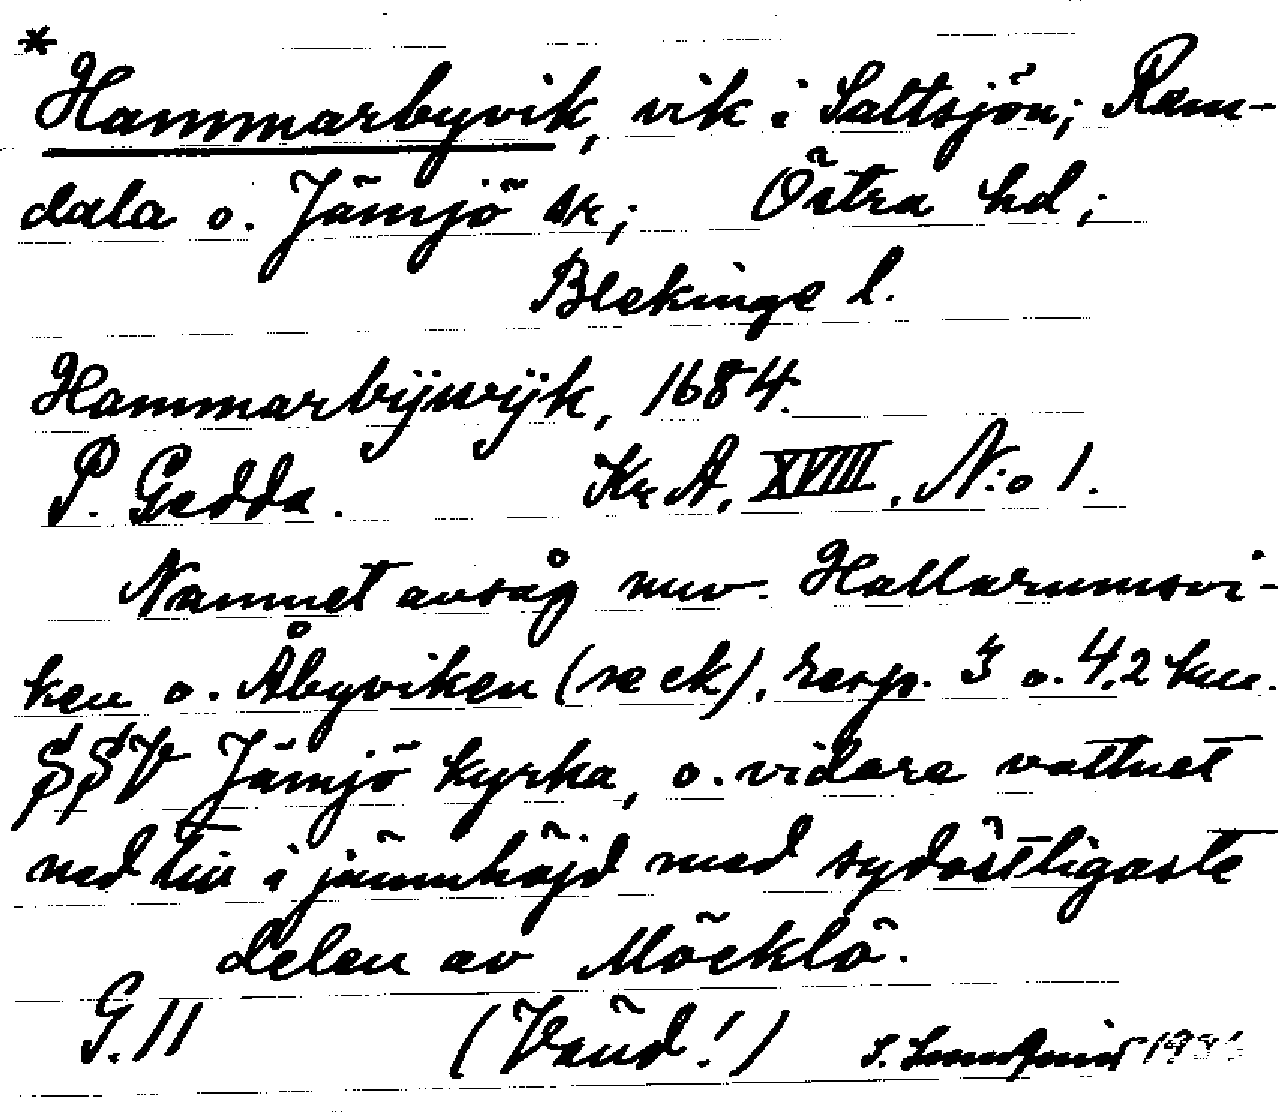 *
Hammarbyvik, vik i Saltsjön; Ram-
dala o. Jämjö sk; Östra hd;
Blekinge l.
Hammarbÿwÿk, 1684.
P. Gedda. Kr A, XVIII, N:o 1.
Namnet avsåg nuv. Hallarumsvi-
ken o. Åbyviken (se ek), resp. 3 o. 4,2 km.
SSV Jämjö kyrka, o. vidare vattnet
ned till i jämnhöjd med sydöstligaste
delen av Möcklö.
G. 11 (Vänd!) S.